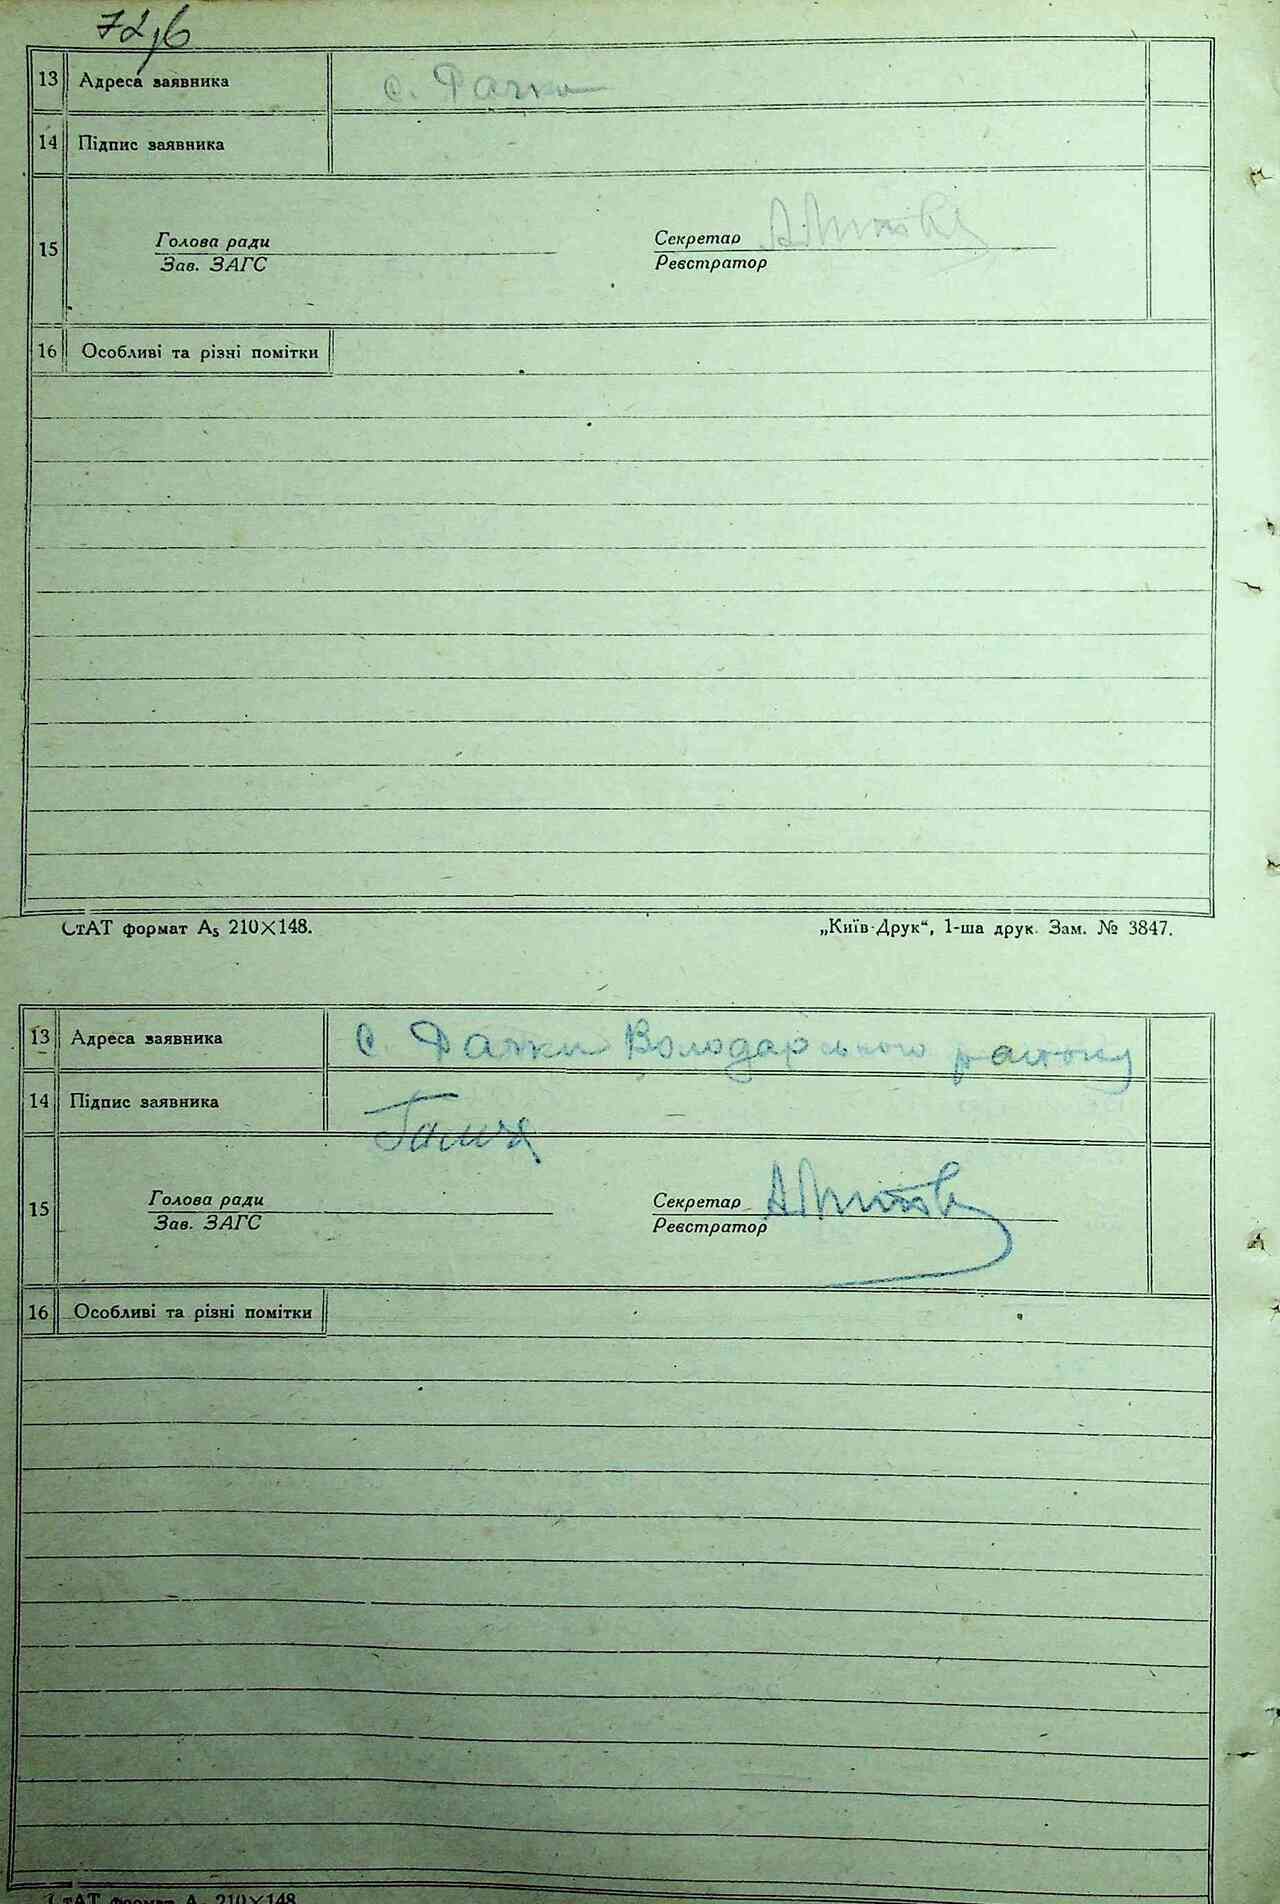 72, б
13 Адреса заявника с. Рачки
14 Підпис заявника
15 Голова ради Секретар
Зав. ЗАГС Реєстратор
16 Особливі та різні помітки
СтАТ формат А5 210×148. „Київ-Друк“, 1-ша друк. Зам. № 3847.
13 Адреса заявника с. Рачки Володарського району
14 Підпис заявника
15 Голова ради Секретар
Зав. ЗАГС Реєстратор
16 Особливі та різні помітки
СтАТ формат А5 210×148